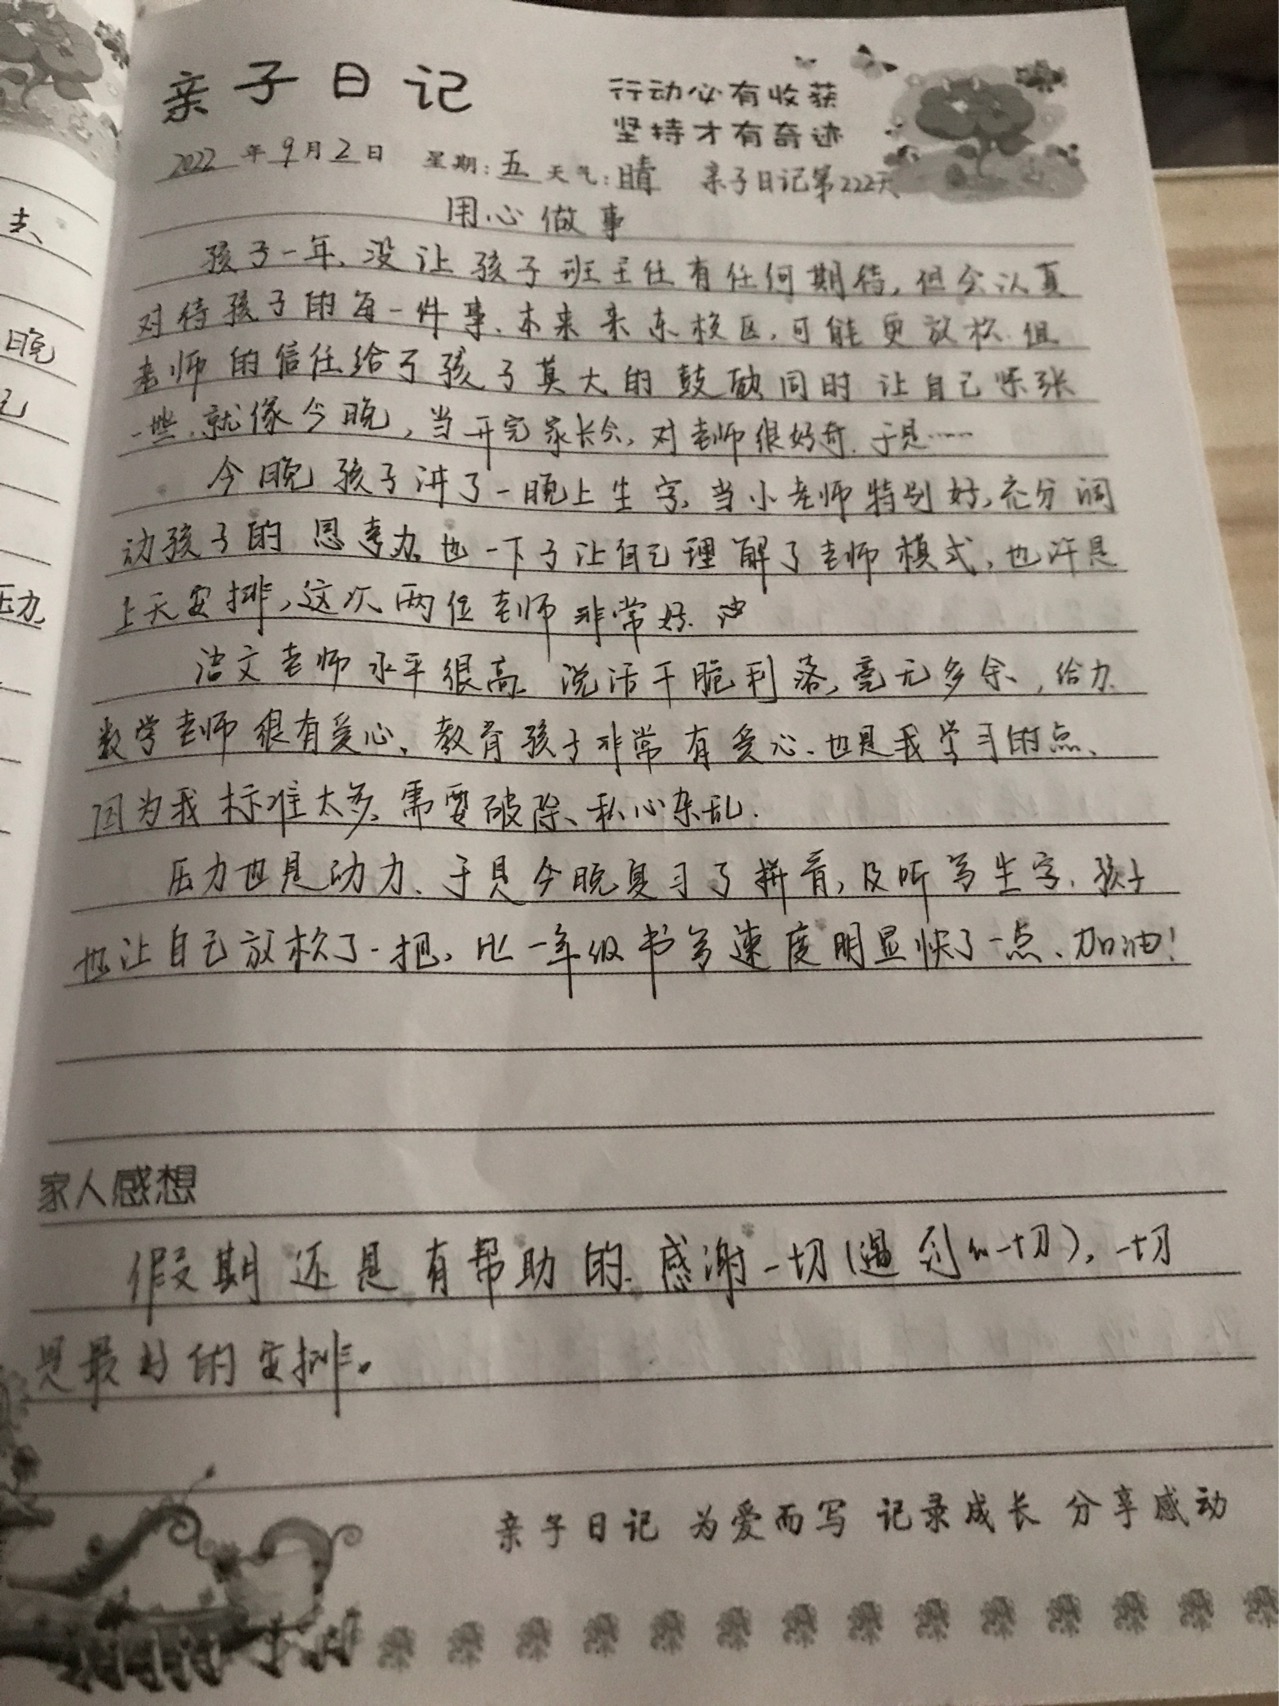 亲子日记
行动必有收获
坚持才有奇迹
2022年9月2日 星期:五 天气:晴 亲子日记第222天
用心做事
孩子一年、没让孩子班主任有任何期待,但会认真
对待孩子的每一件事、本来来东校区,可能更放松 但
老师的信任给了孩子莫大的鼓励同时让自己紧张
一些,就像今晚,当开完家长会,对老师很好奇、于是……
今晚孩子讲了一晚上生字,当小老师特别好,充分调
动孩子的思考力 也一下子让自己理解了老师模式,也许是
上天安排,这次两位老师非常好
洁文老师水平很高 说话干脆利落,毫无多余、,给力
数学老师很有爱心、教育孩子非常有爱心、也是我学习的点、
因为我标准太多、需要破除、私心杂乱.
压力也是动力、于是今晚复习了拼音,及听写生字、孩子
也让自己放松了一把,比一年级书写速度明显快了一点、加油!
家人感想
假期还是有帮助的、感谢一切(遇到的一切),一切
是最好的安排。
亲子日记 为爱而写 记录成长 分享感动
去、
晚
压力